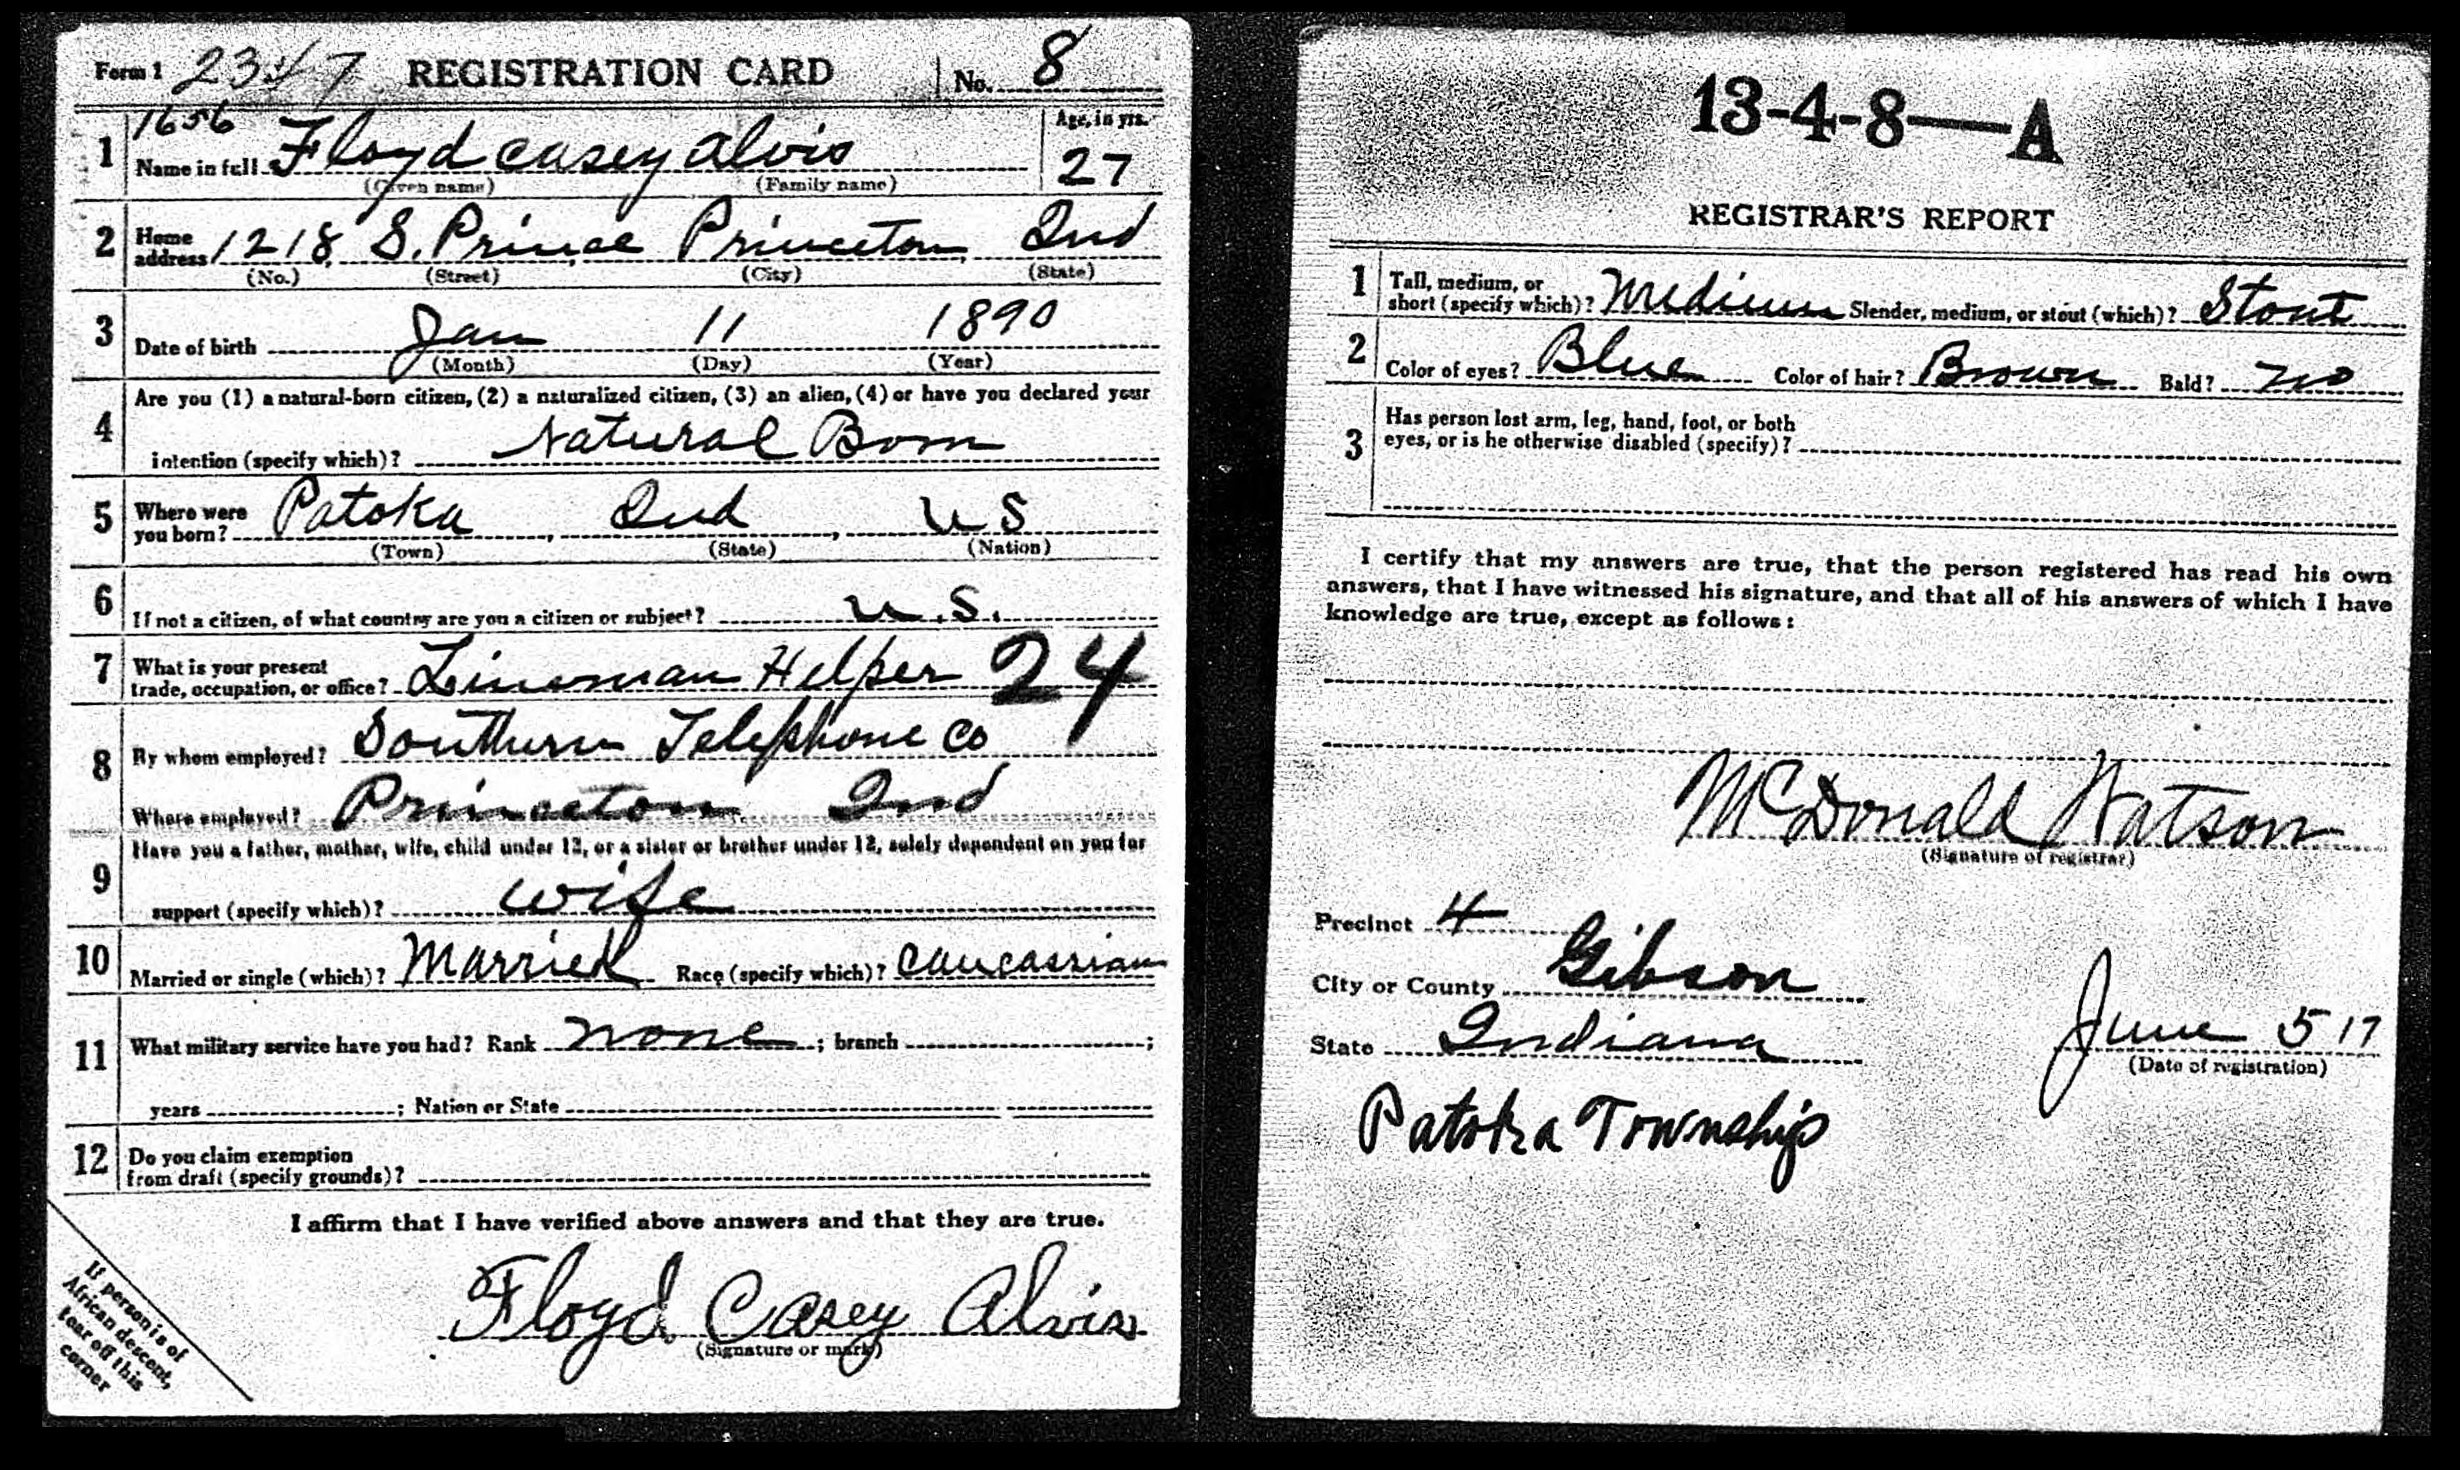 Form 1 REGISTRATION CARD No. 8
1656
1 Name in full Floyd Casey Alvis Age, in yrs. 27
(Given name) (Family name)
2 Home address 1218 S. Prince Princeton, Ind
(No.) (Street) (City) (State)
3 Date of birth Jan 11 1890
(Month) (Day) (Year)
4 Are you (1) a natural-born citizen, (2) a naturalized citizen, (3) an alien, (4) or have you declared your
intention (specify which)? Natural Born
5 Where were you born? Patoka, Ind, US
(Town) (State) (Nation)
6 If not a citizen, of what country are you a citizen or subject? U.S.
7 What is your present
trade, occupation, or office? Lineman Helper 24
8 By whom employed? Southern Telephone Co
Where employed? Princeton Ind
9 Have you a father, mother, wife, child under 12, or a sister or brother under 12, solely dependent on you for
support (specify which)? wife
10 Married or single (which)? Married Race (specify which)? Caucassian
11 What military service have you had? Rank none; branch ;
years ; Nation or State
12 Do you claim exemption
from draft (specify grounds)?
I affirm that I have verified above answers and that they are true.
Floyd Casey Alvis
(Signature or mark)
If person is of
African descent,
tear off this
corner
13-4-8—A
REGISTRAR'S REPORT
1 Tall, medium, or
short (specify which)? Medium Slender, medium, or stout (which)? Stout
2 Color of eyes? Blue Color of hair? Brown Bald? no
3 Has person lost arm, leg, hand, foot, or both
eyes, or is he otherwise disabled (specify)?
I certify that my answers are true, that the person registered has read his own
answers, that I have witnessed his signature, and that all of his answers of which I have
knowledge are true, except as follows:
McDonald Watson
(Signature of registrar)
Precinct 4
City or County Gibson
State Indiana June 5 17
(Date of registration)
Patoka Township